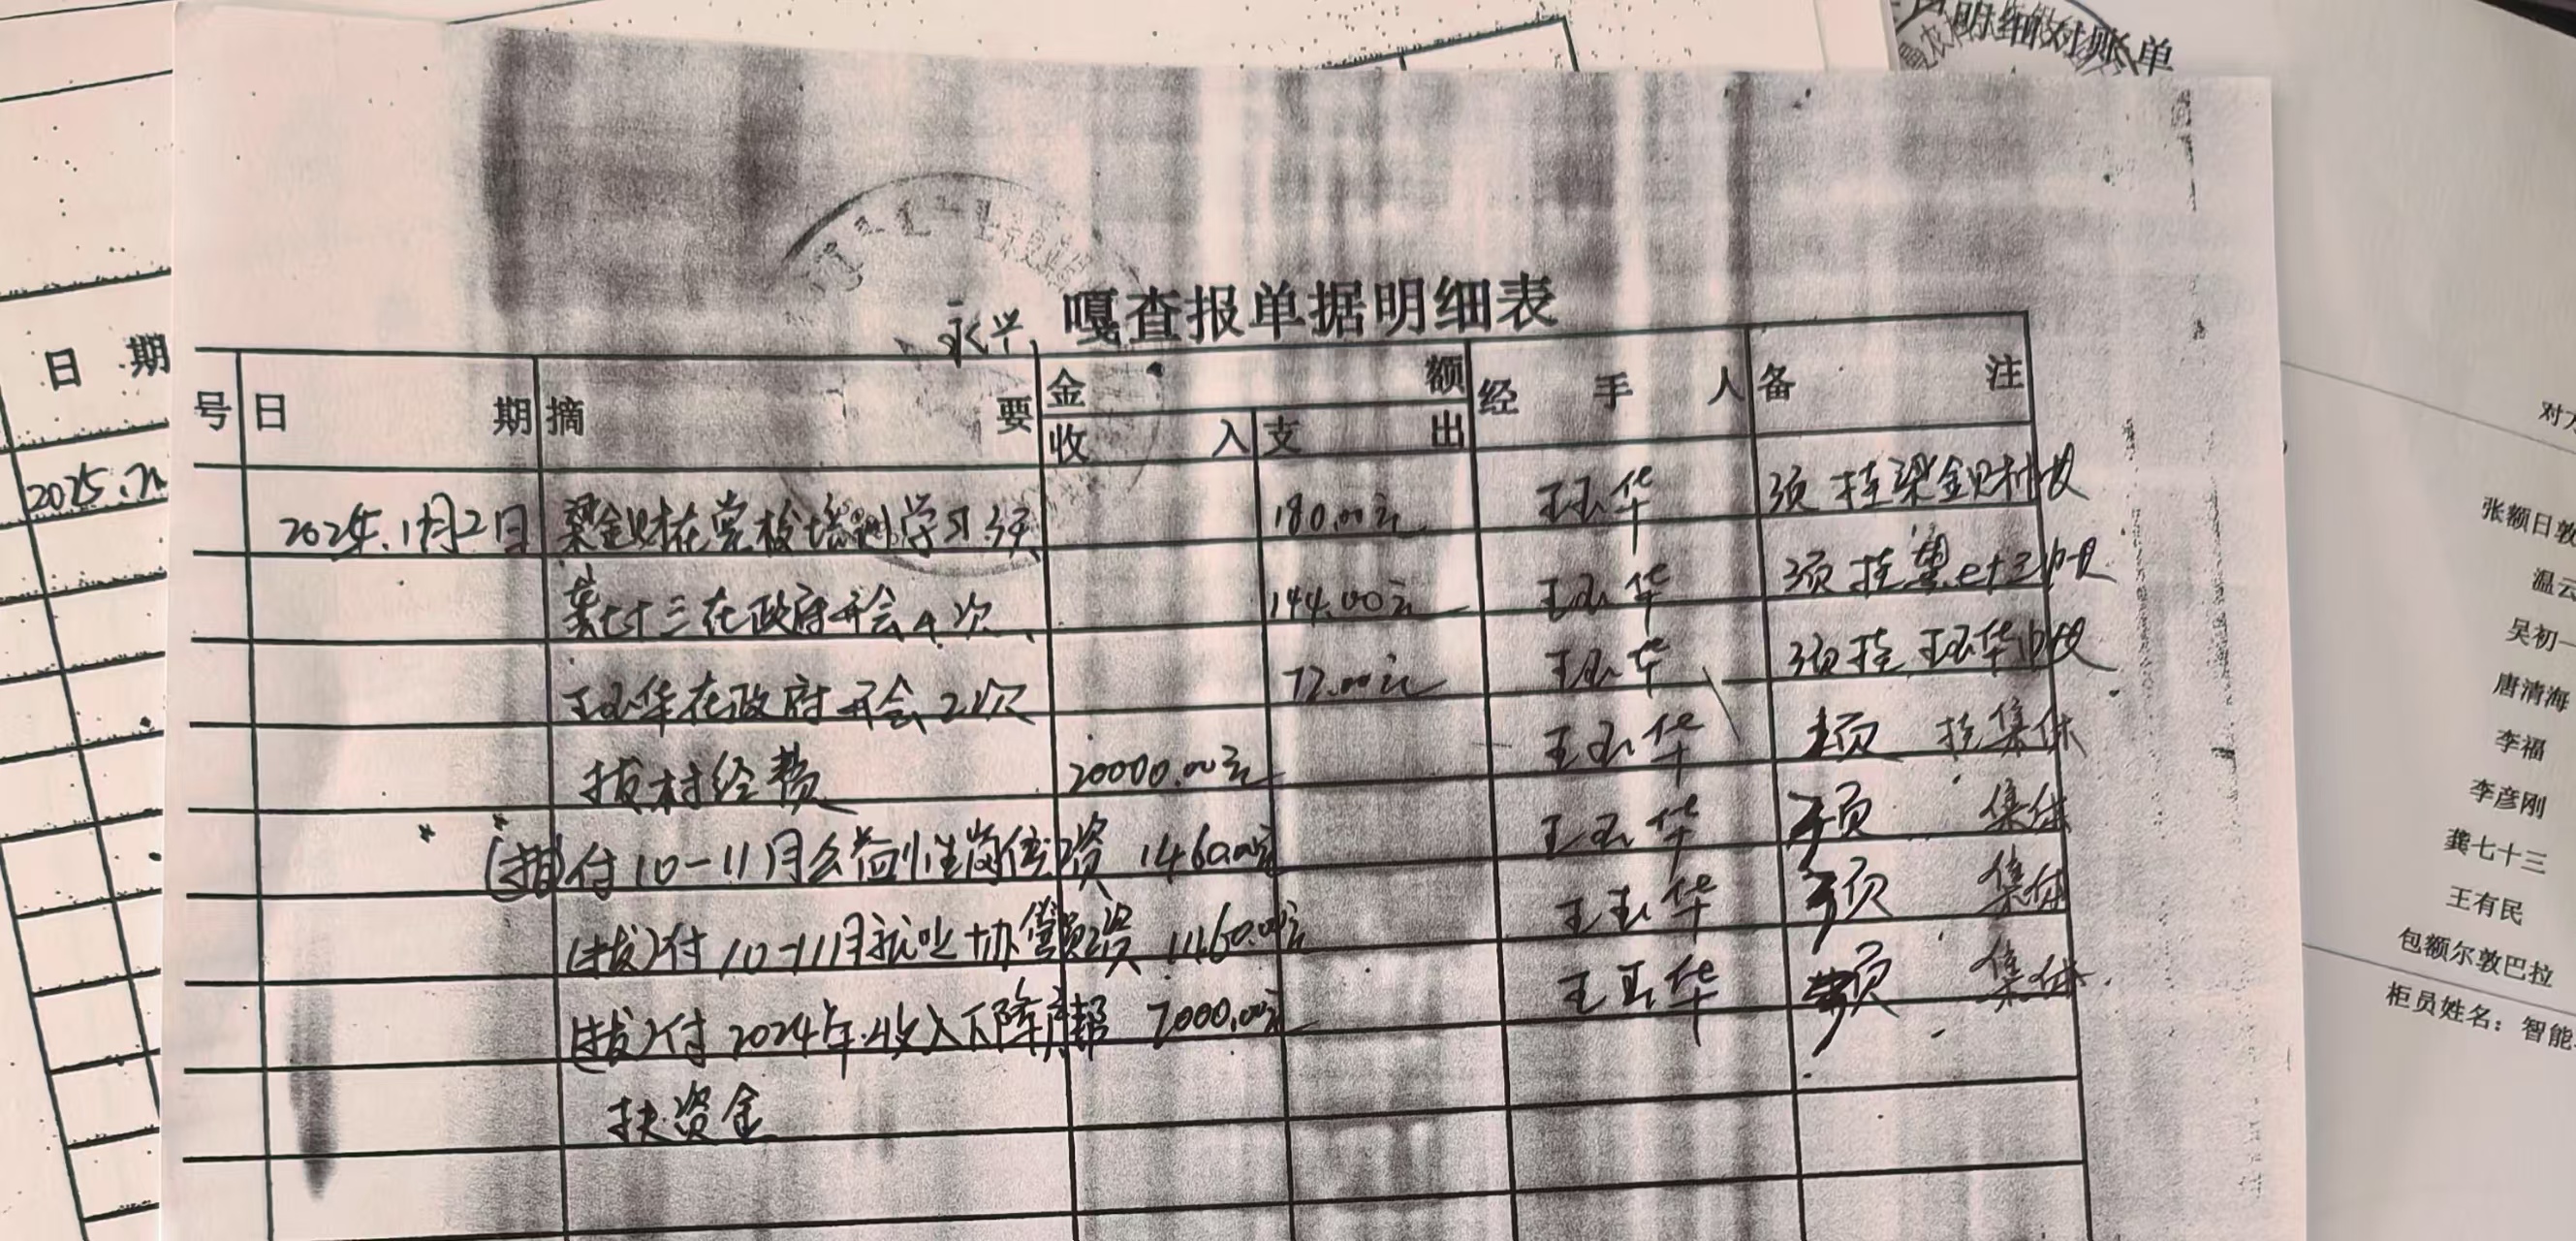 明细对账单
永兴 嘎查报单据明细表
日 期
号 日 期 摘 要 金 额 经 手 人 备 注
收 入 支 出
2025.
梁金财在党校培训学习3天 180.00元 王玉华 挂梁金财
龚七十三在政府开会4次 144.00元 王玉华 挂龚七十三
王玉华在政府开会2次 72.00元 王玉华 挂王玉华
拨村经费 20000.00元 王玉华 挂集体
(拨)付10-11月公益性岗位工资 1460.00元 王玉华 集体
(拨)付10-11月就业协管员工资 1160.00元 王玉华 集体
(拨)付2024年收入下降户帮 7000.00元 王玉华 集体
扶资金
张额日敦
温云
吴初一
唐清海
李福
李彦刚
龚七十三
王有民
包额尔敦巴拉
柜员姓名：智能